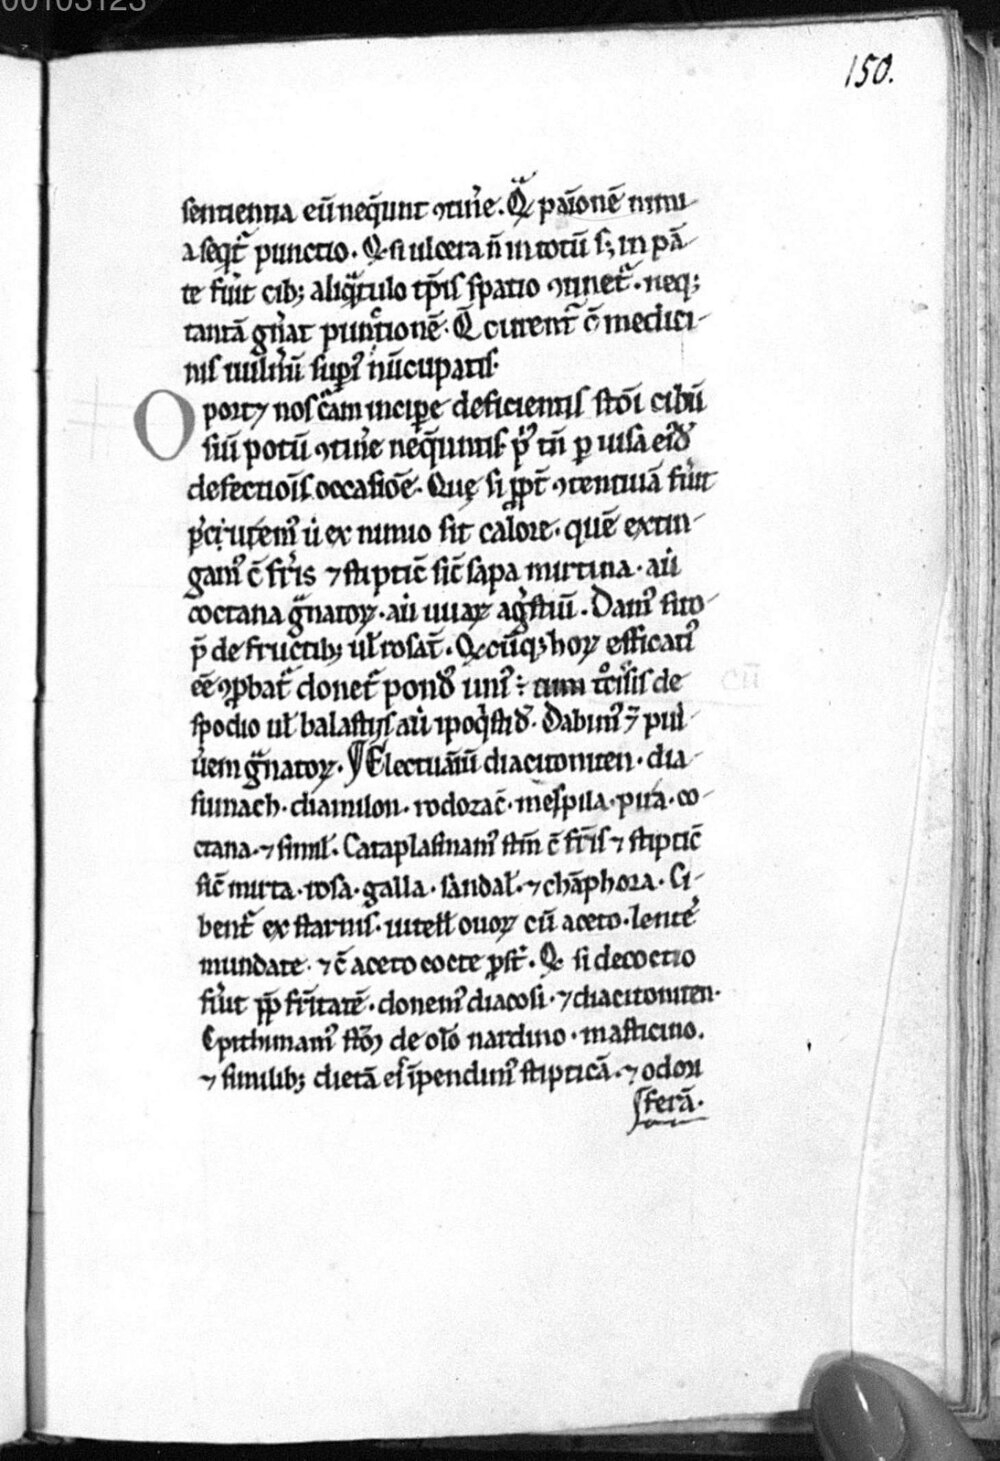 00103123
150.
sentientia eū neq̄unt ꝯtin̄e. Q̄ paīonē nimi-
a seqͭ punctio. Q si ulcera ñ in totū sꝫ in pā-
te fiūt cibꝫ aliq̄tulo tp̄is spatio ꝯtinet᷑. neqꝫ
tantā gn̄at punctionē. Q̄ curent᷑ c̄ medici-
nis uulnū sup᷑ nūcupatis.
Oportꝫ nos c̄am incipe deficientis stōi cibū
siū potū ꝯtin̄e neq̄untis tn̄ ꝑ uisa eiꝰdē
defectiōis occasiōe. Que si ꝓpt̄ ꝯtentiuā fiūt
ex nimio fit calore. quē extin-
gamꝰ c̄ fr̄is ⁊ stiptic̄ sic̄ sapa mirtina. aū
coctana g̈natoꝝ. aū uuaꝝ ag̈stiū. Damꝰ siro-
p̄ de fructibꝫ ul̄ rosat̄. Q̄cūqꝫ hoꝝ efficatiꝰ
eē ꝓbat᷑ donet᷑ pond᷑ uniꝰ cum de
spodio ul̄ balastiis aū ipoq̄stid᷑. Dabimꝰ ⁊ pul-
ūem g̈natoꝝ. ¶ Electuāiū diacitoniten. dia-
sumach. diamilon. rodozac̄. mespila. pira. co-
ctana. ⁊ simil̄. Cataplasmamꝰ stm̄ c̄ fr̄is ⁊ stiptic̄
sic̄ mirta. rosa. galla. sandal̄. ⁊ chāphora. Ci-
bent᷑ ex starnis. uitell̄ ouoꝝ cū aceto. lente
mundate. ⁊ c̄ aceto cocte Q si decoctio
fiūt ꝓp̄ fr̄itatē. donemꝰ diacosi. ⁊ diacitoniten.
Epithimamꝰ stō de olō nardino. masticino.
⁊ similibꝫ dietā īpendimꝰ stipticā. ⁊ odori
ferā.